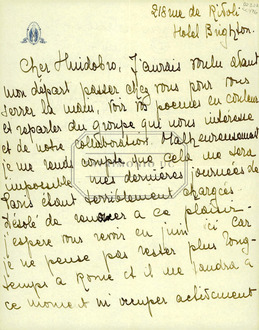 218 rue de Rivoli
Hotel Brighton.
Cher Huidobro. J'aurais voulu avant
mon depart passer chez vous pour vous
serrer la main, voir vos poemes en couleurs
et reparler du groupe qui nous interesse
et de notre collaboration. Malheureusement
je me rends compte que cela me sera
impossible mes dernieres journées de
Paris étant terriblement chargées
Désolé de a ce plaisir
j'espere vous revoir en juin ici car
je ne pense pas rester plus long-
temps a Rome et il me faudra a
ce moment m'occuper activement